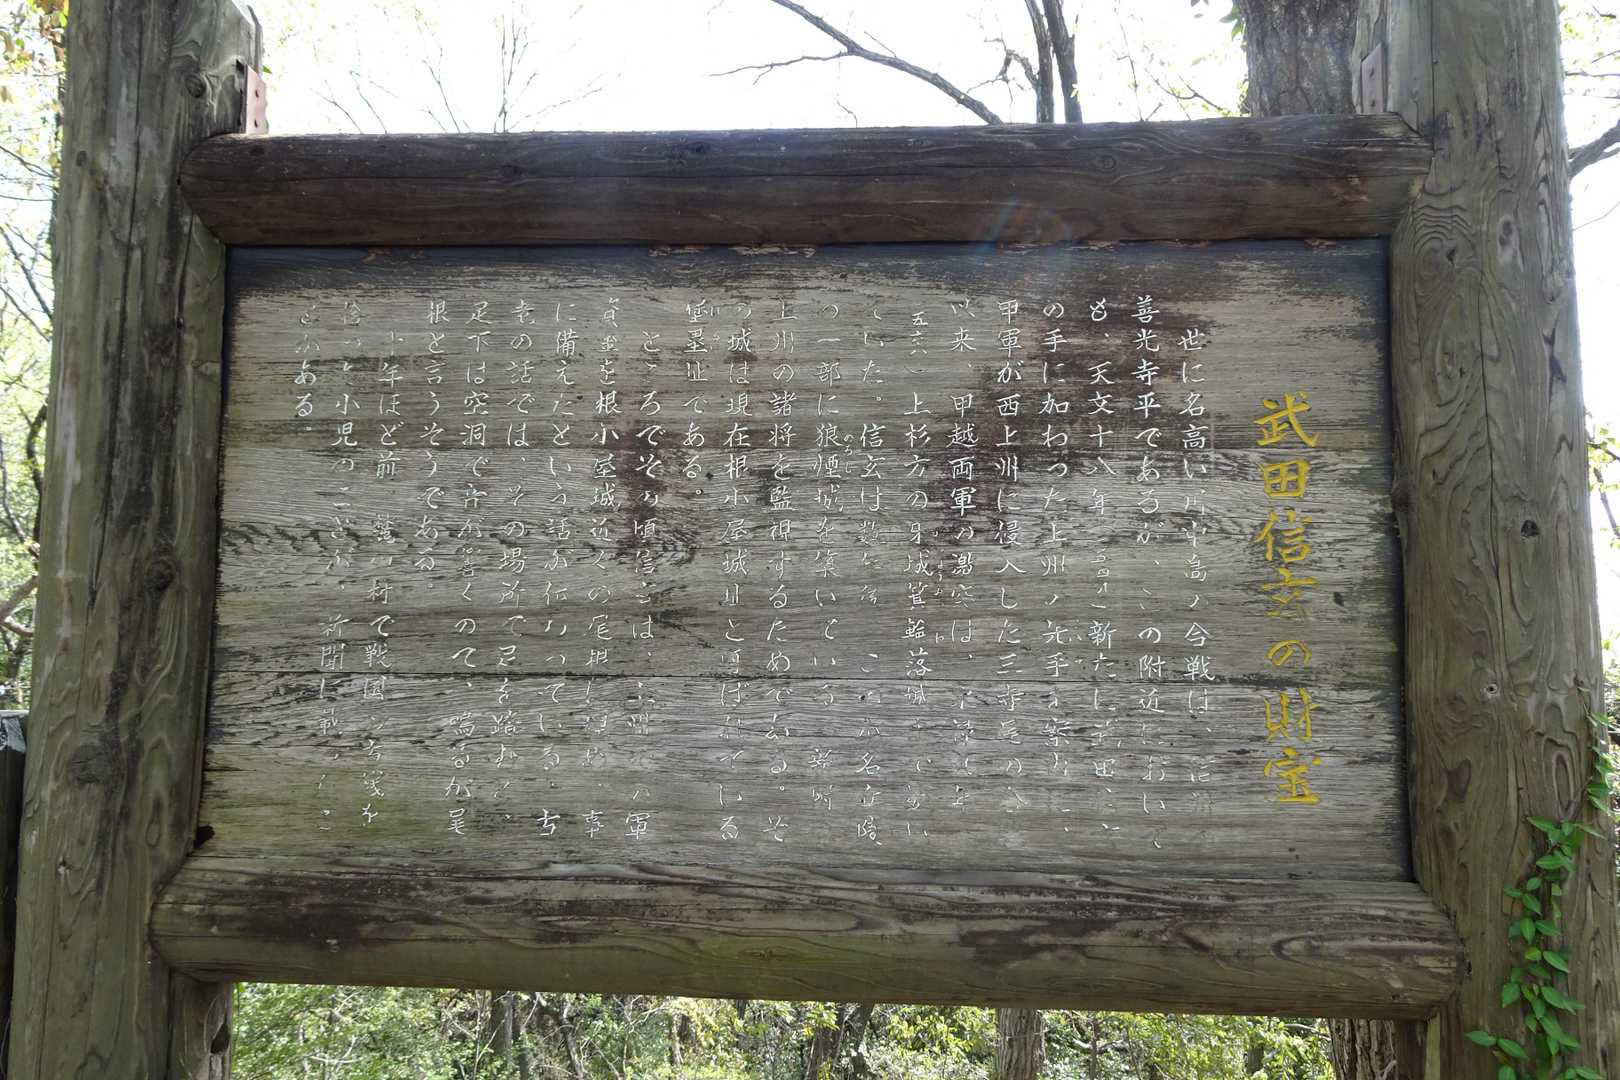 武田信玄の財宝
世に名高い川中島の合戦は、
善光寺平であるが、この附近において
も、天文十八年 新たに
の手に加わった上州の先手を案内に、
甲軍が西上州に侵入した三寺尾の
以来、甲越両軍の激突は、
上杉方の牙城箕輪落城まで続い
ていた。信玄は数年後 この
の一部に狼煙城を築いている。
のろし
上州の諸将を監視するためである。
の城は現在根小屋城址と呼ばれている
塁址である。
ところでその頃信玄は、 軍
資金を根小屋城近くの尾根に埋め、事
に備えたという話が伝わっている。古
老の話では、その場所で足を踏むと、
足下は空洞で音が響くので、鳴るが尾
根と言うそうである。
十年ほど前 村で戦国の古銭を
拾った小児のことが、新聞に載ったこ
とがある。